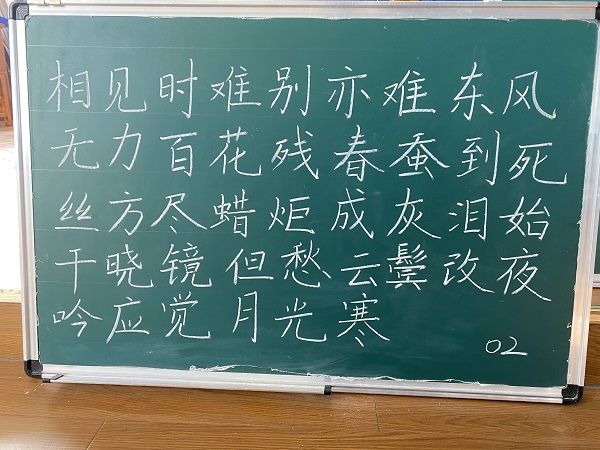 相见时难别亦难东风
无力百花残春蚕到死
丝方尽蜡炬成灰泪始
干晓镜但愁云鬓改夜
吟应觉月光寒
02